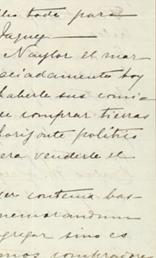 todo para
Jaguey
Naylor el mar
ciadamente hoy
haberle sus comi
e comprar tierras
horizonte politico
era venderle el
contenia bas
memorandum
gregar sino es